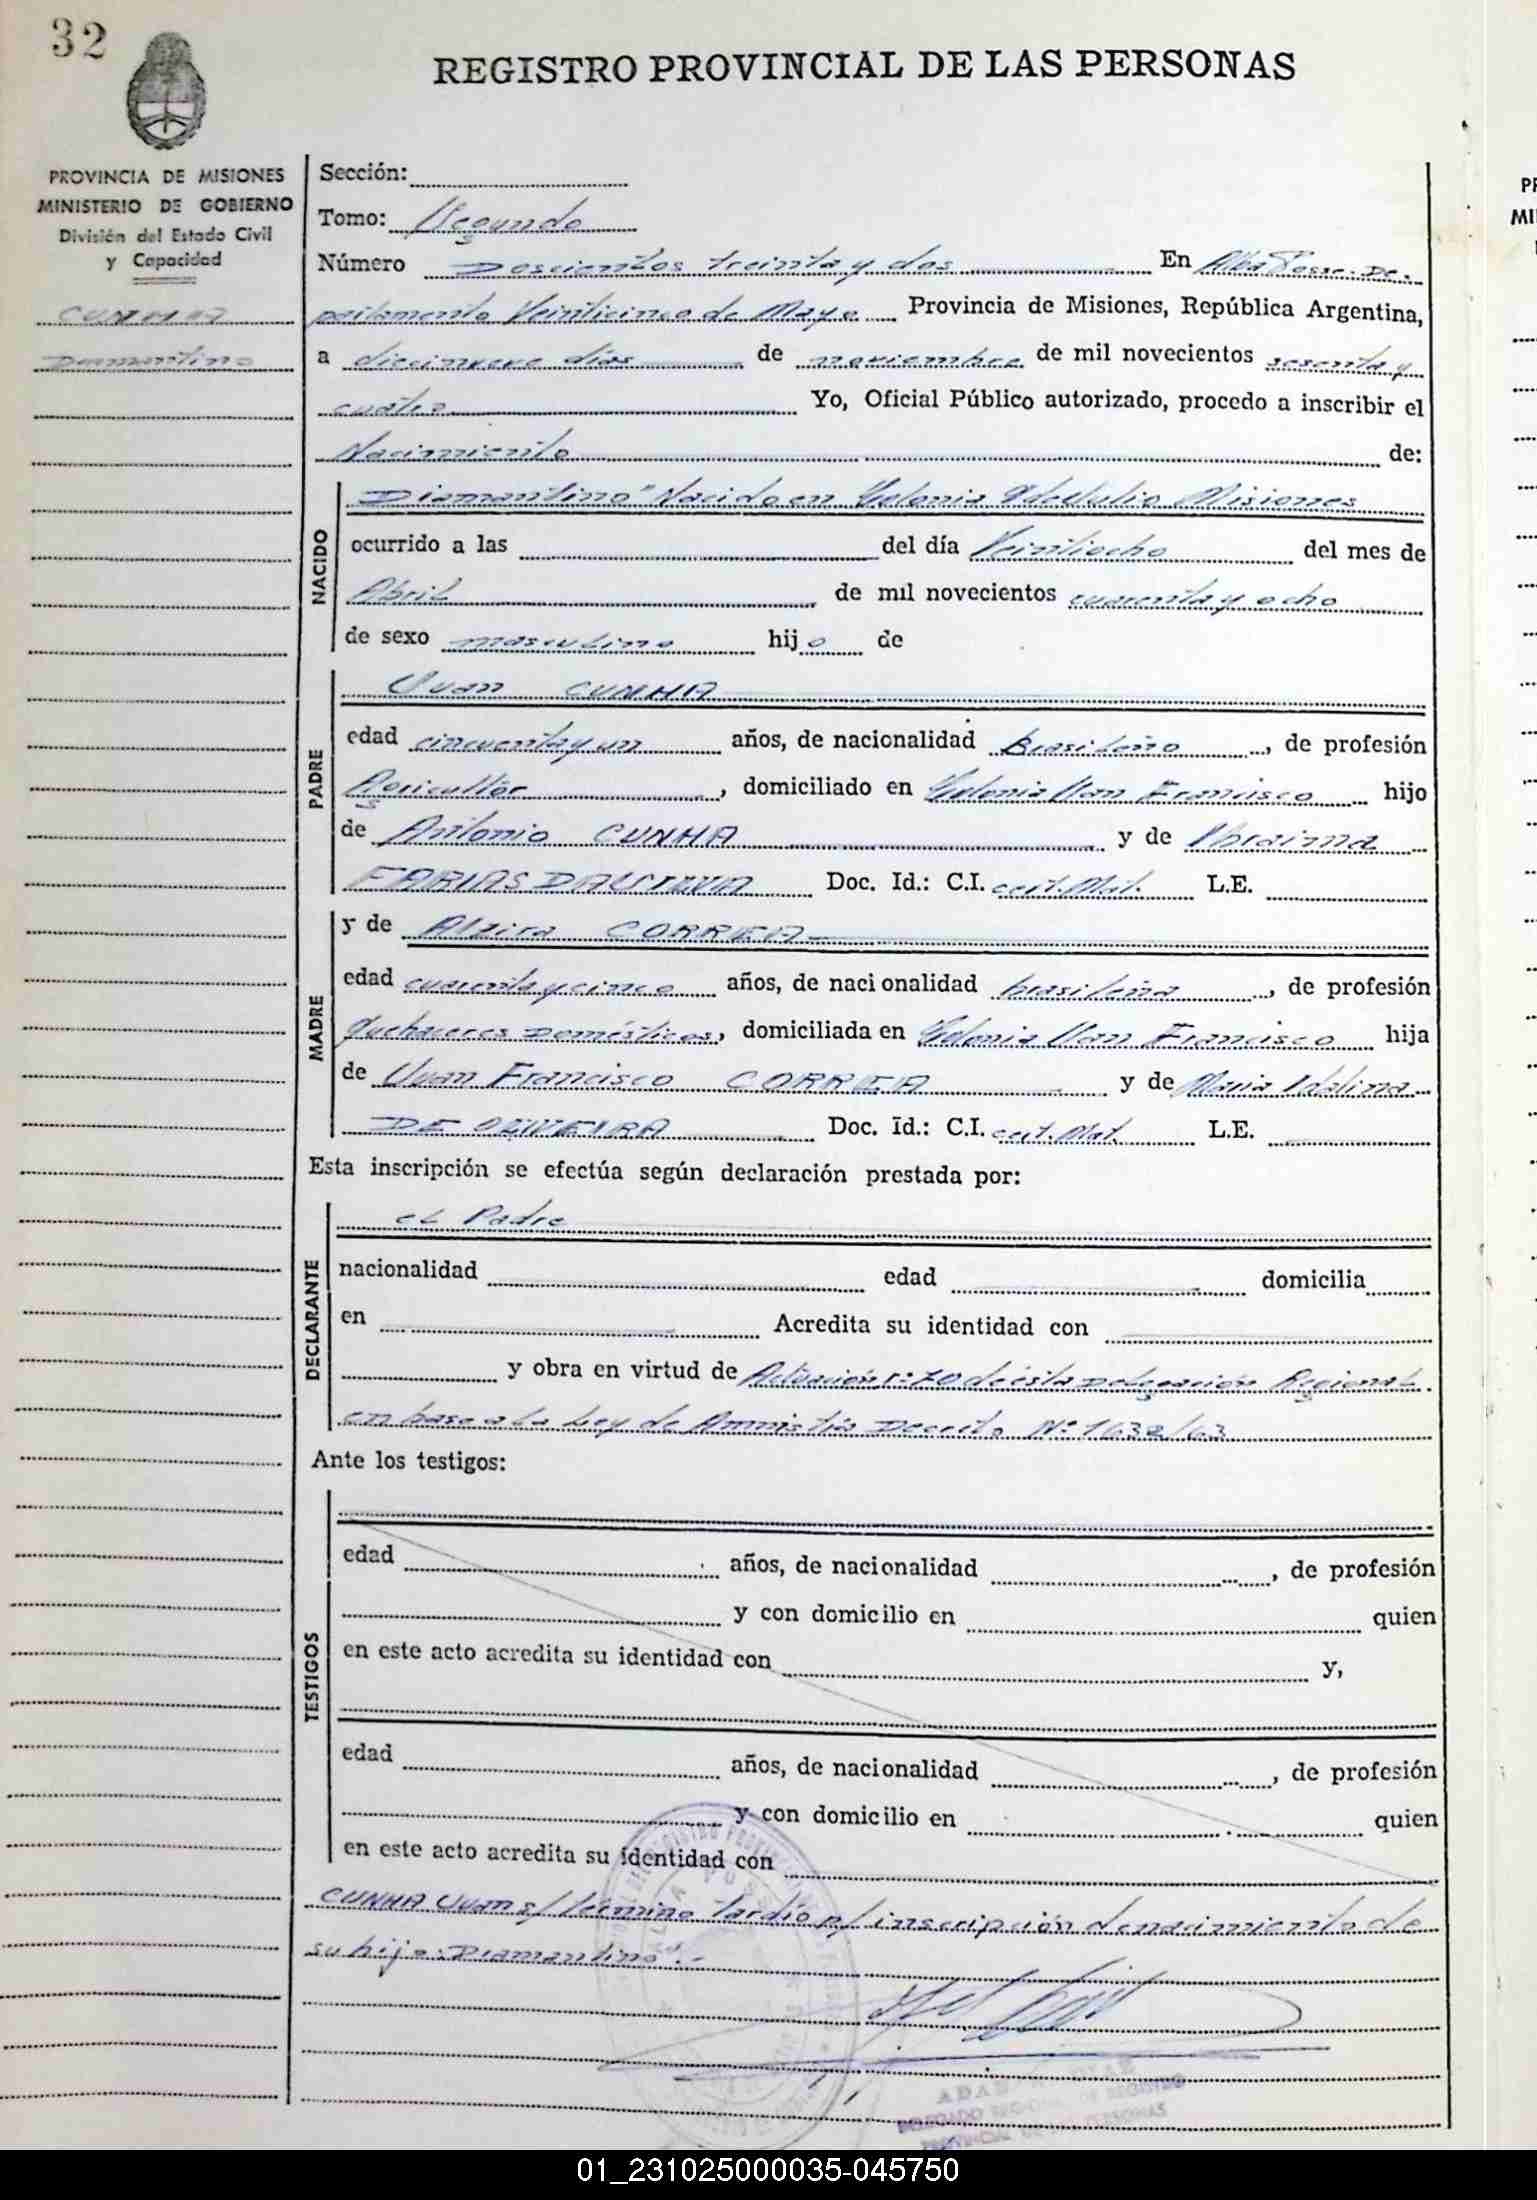 32
REGISTRO PROVINCIAL DE LAS PERSONAS
PROVINCIA DE MISIONES
MINISTERIO DE GOBIERNO
División del Estado Civil
y Capacidad
CUNHA
Diamantino
Sección:
Tomo: Segundo
Número Doscientos treinta y dos En Alba Posse. De-
partamento Veinticinco de Mayo Provincia de Misiones, República Argentina,
a diecinueve días de noviembre de mil novecientos sesenta y
cuatro Yo, Oficial Público autorizado, procedo a inscribir el
Nacimiento de:
NACIDO
Diamantino" Nacido en Colonia Misiones
ocurrido a las del día Veintiocho del mes de
Abril de mil novecientos cuarenta y ocho
de sexo masculino hijo de
PADRE
Juan CUNHA
edad cincuenta y un años, de nacionalidad Brasileño, de profesión
Agricultor, domiciliado en Colonia San Francisco hijo
de Antonio CUNHA y de
FARIAS DALSILVA Doc. Id.: C.I. cert. Mat. L.E.
MADRE
y de Alzira CORREA
edad cuarenta y cinco años, de nacionalidad brasileña, de profesión
Quehaceres Domésticos, domiciliada en Colonia San Francisco hija
de Juan Francisco CORREA y de Maria Idalina
DE OLIVEIRA Doc. Id.: C.I. cert. Mat. L.E.
Esta inscripción se efectúa según declaración prestada por:
DECLARANTE
el Padre
nacionalidad edad domicilia
en Acredita su identidad con
y obra en virtud de Actuación n° 70 de ésta Delegación Regional
en base a la Ley de Amnistía Decreto N° 1632/63
Ante los testigos:
TESTIGOS
edad años, de nacionalidad , de profesión
y con domicilio en quien
en este acto acredita su identidad con y,
edad años, de nacionalidad , de profesión
y con domicilio en quien
en este acto acredita su identidad con
CUNHA Juan s/ término tardío p/ inscripción de nacimiento de
su hijo: Diamantino".-
DELEGADO REGIONAL DE REGISTRO
PROVINCIAL DE LAS PERSONAS
01_231025000035-045750